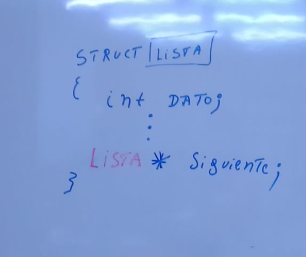 STRUCT LISTA
{
int DATO;
⋮
LISTA * Siguiente;
}